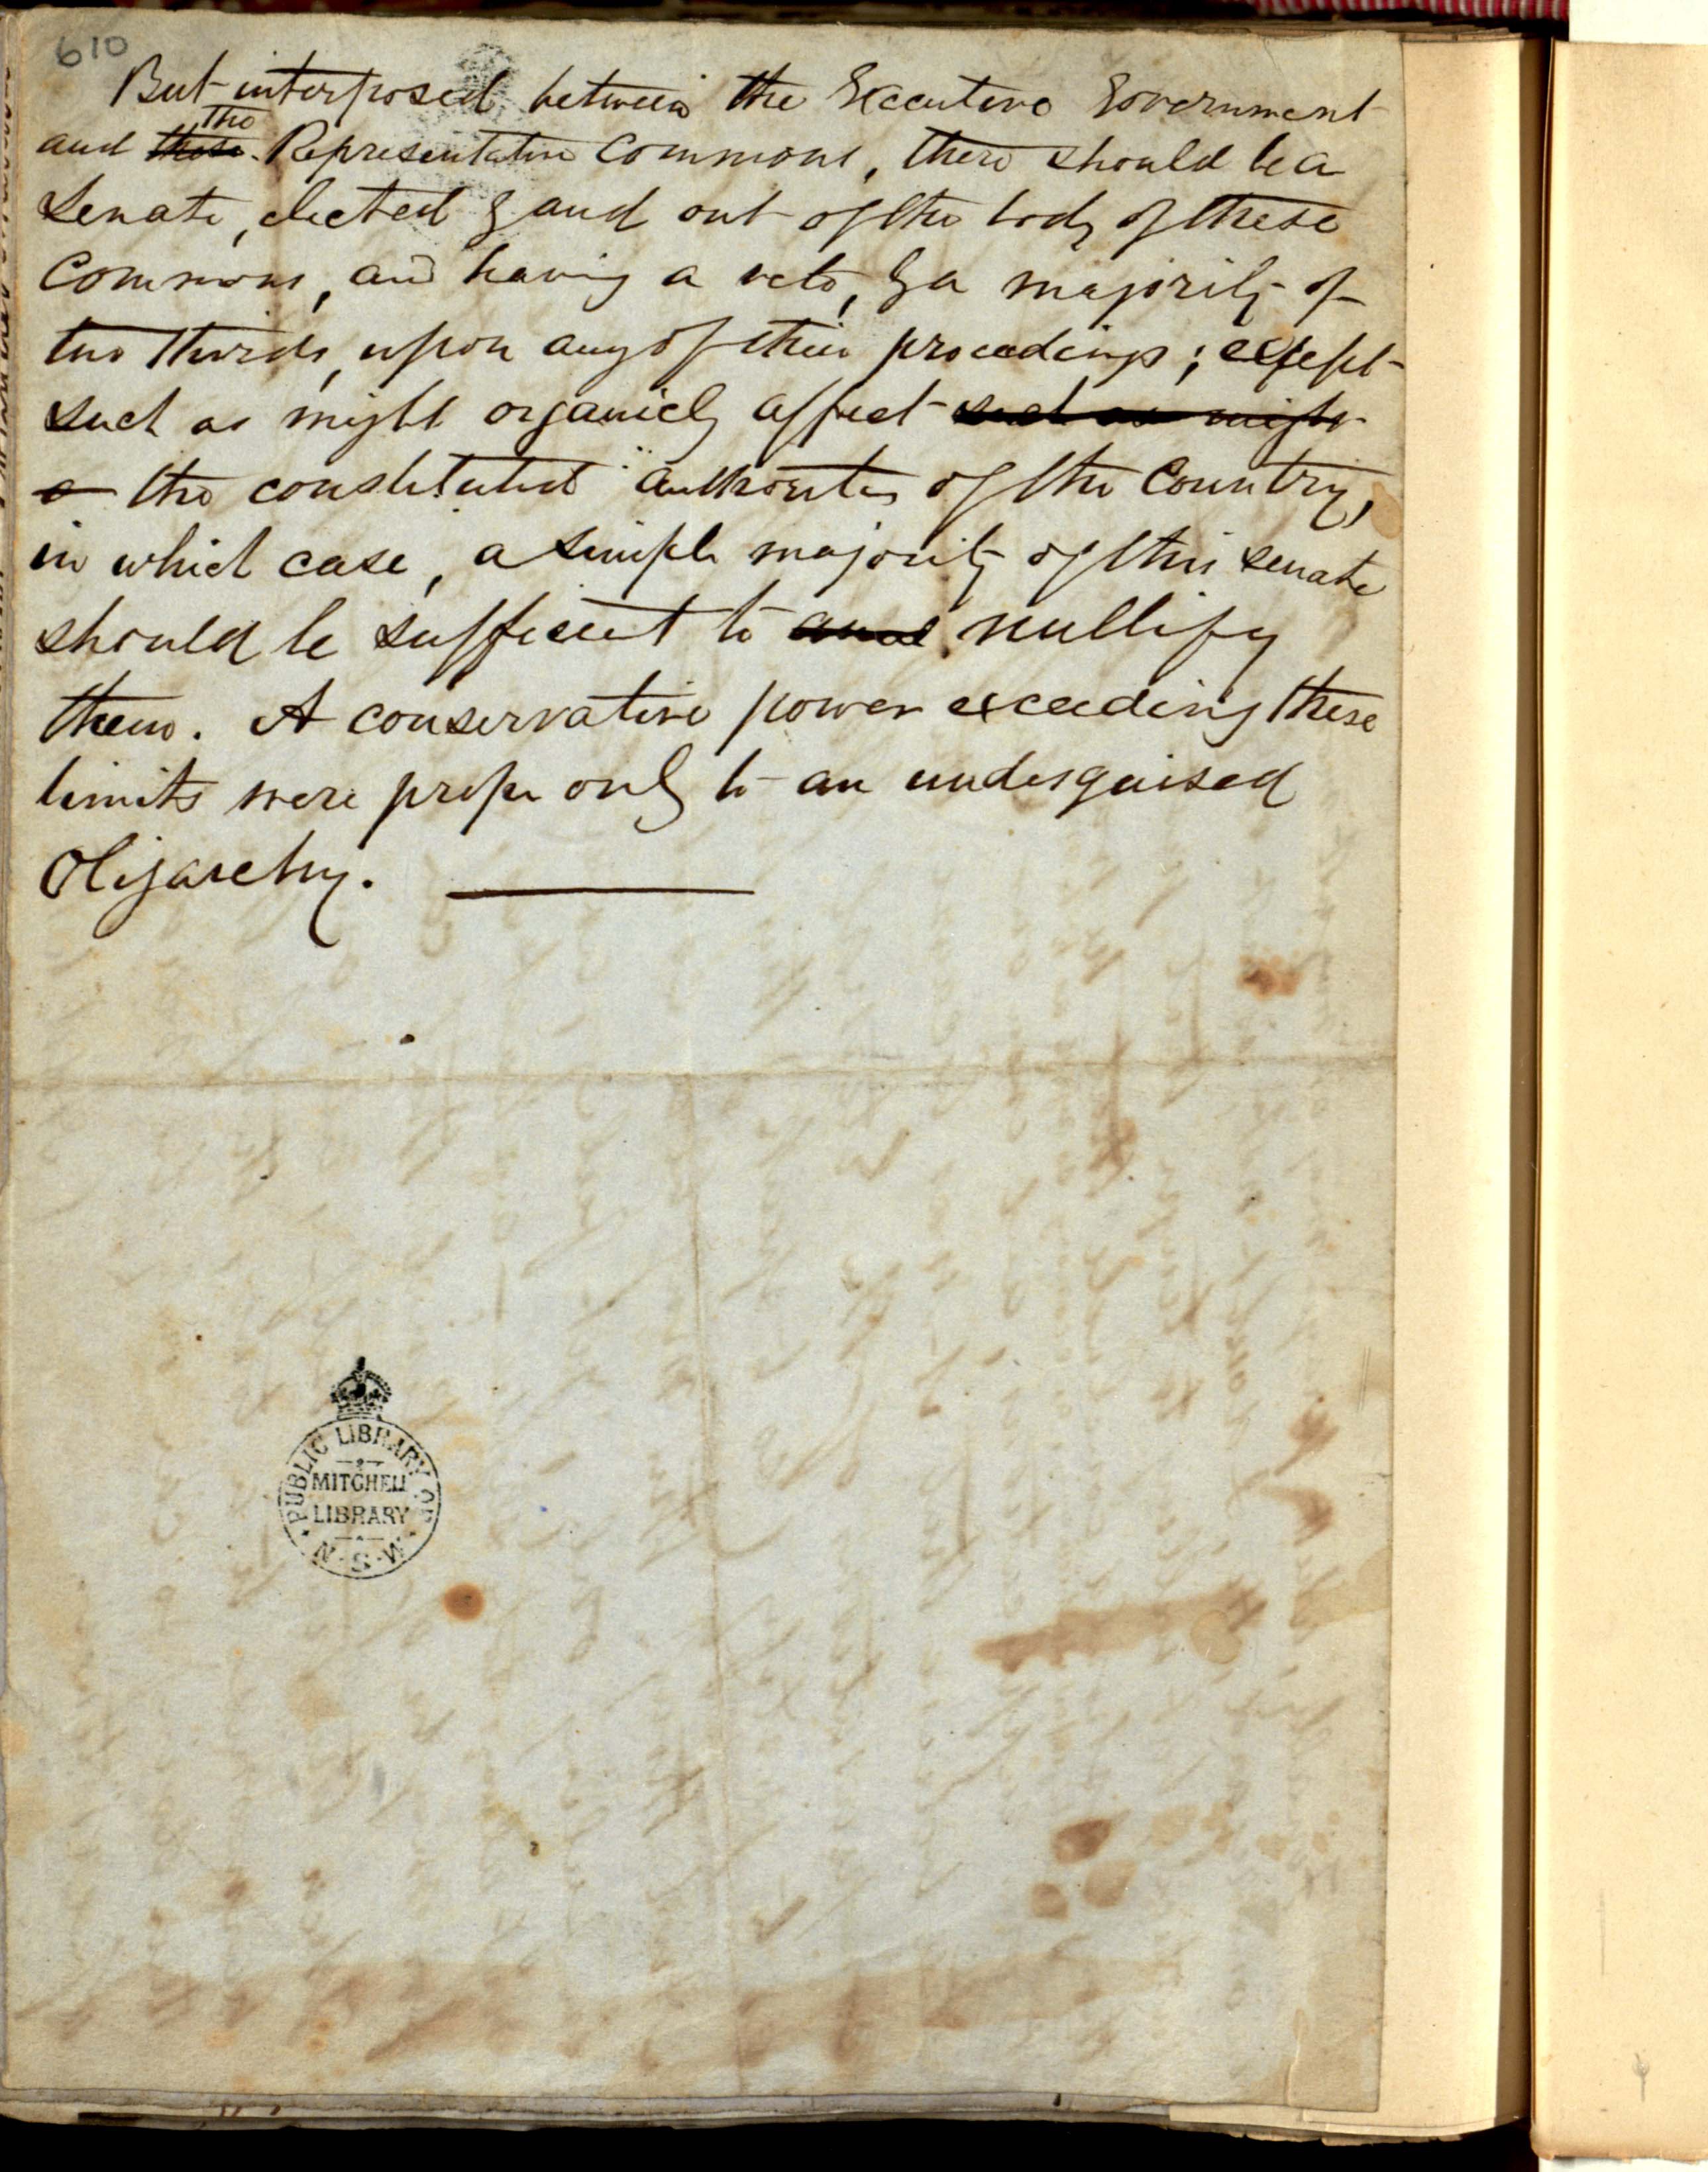 610
But interposed between the Executive Government
the
and these Representative Commons, there should be a
Senate, elected by and out of the body of these
Commons, and having a veto, by a majority of
two thirds, upon any of their proceedings; except
such as might organicly affect such as might
a the constituted authorites of the Country,
in which case, a simple majority of this senate
should be sufficient to nullify
them. A conservative power exceeding these
limits were proper only to an undesguised
Oligarchy.
PUBLIC LIBRARY OF
MITCHELL
LIBRARY
N·S·W